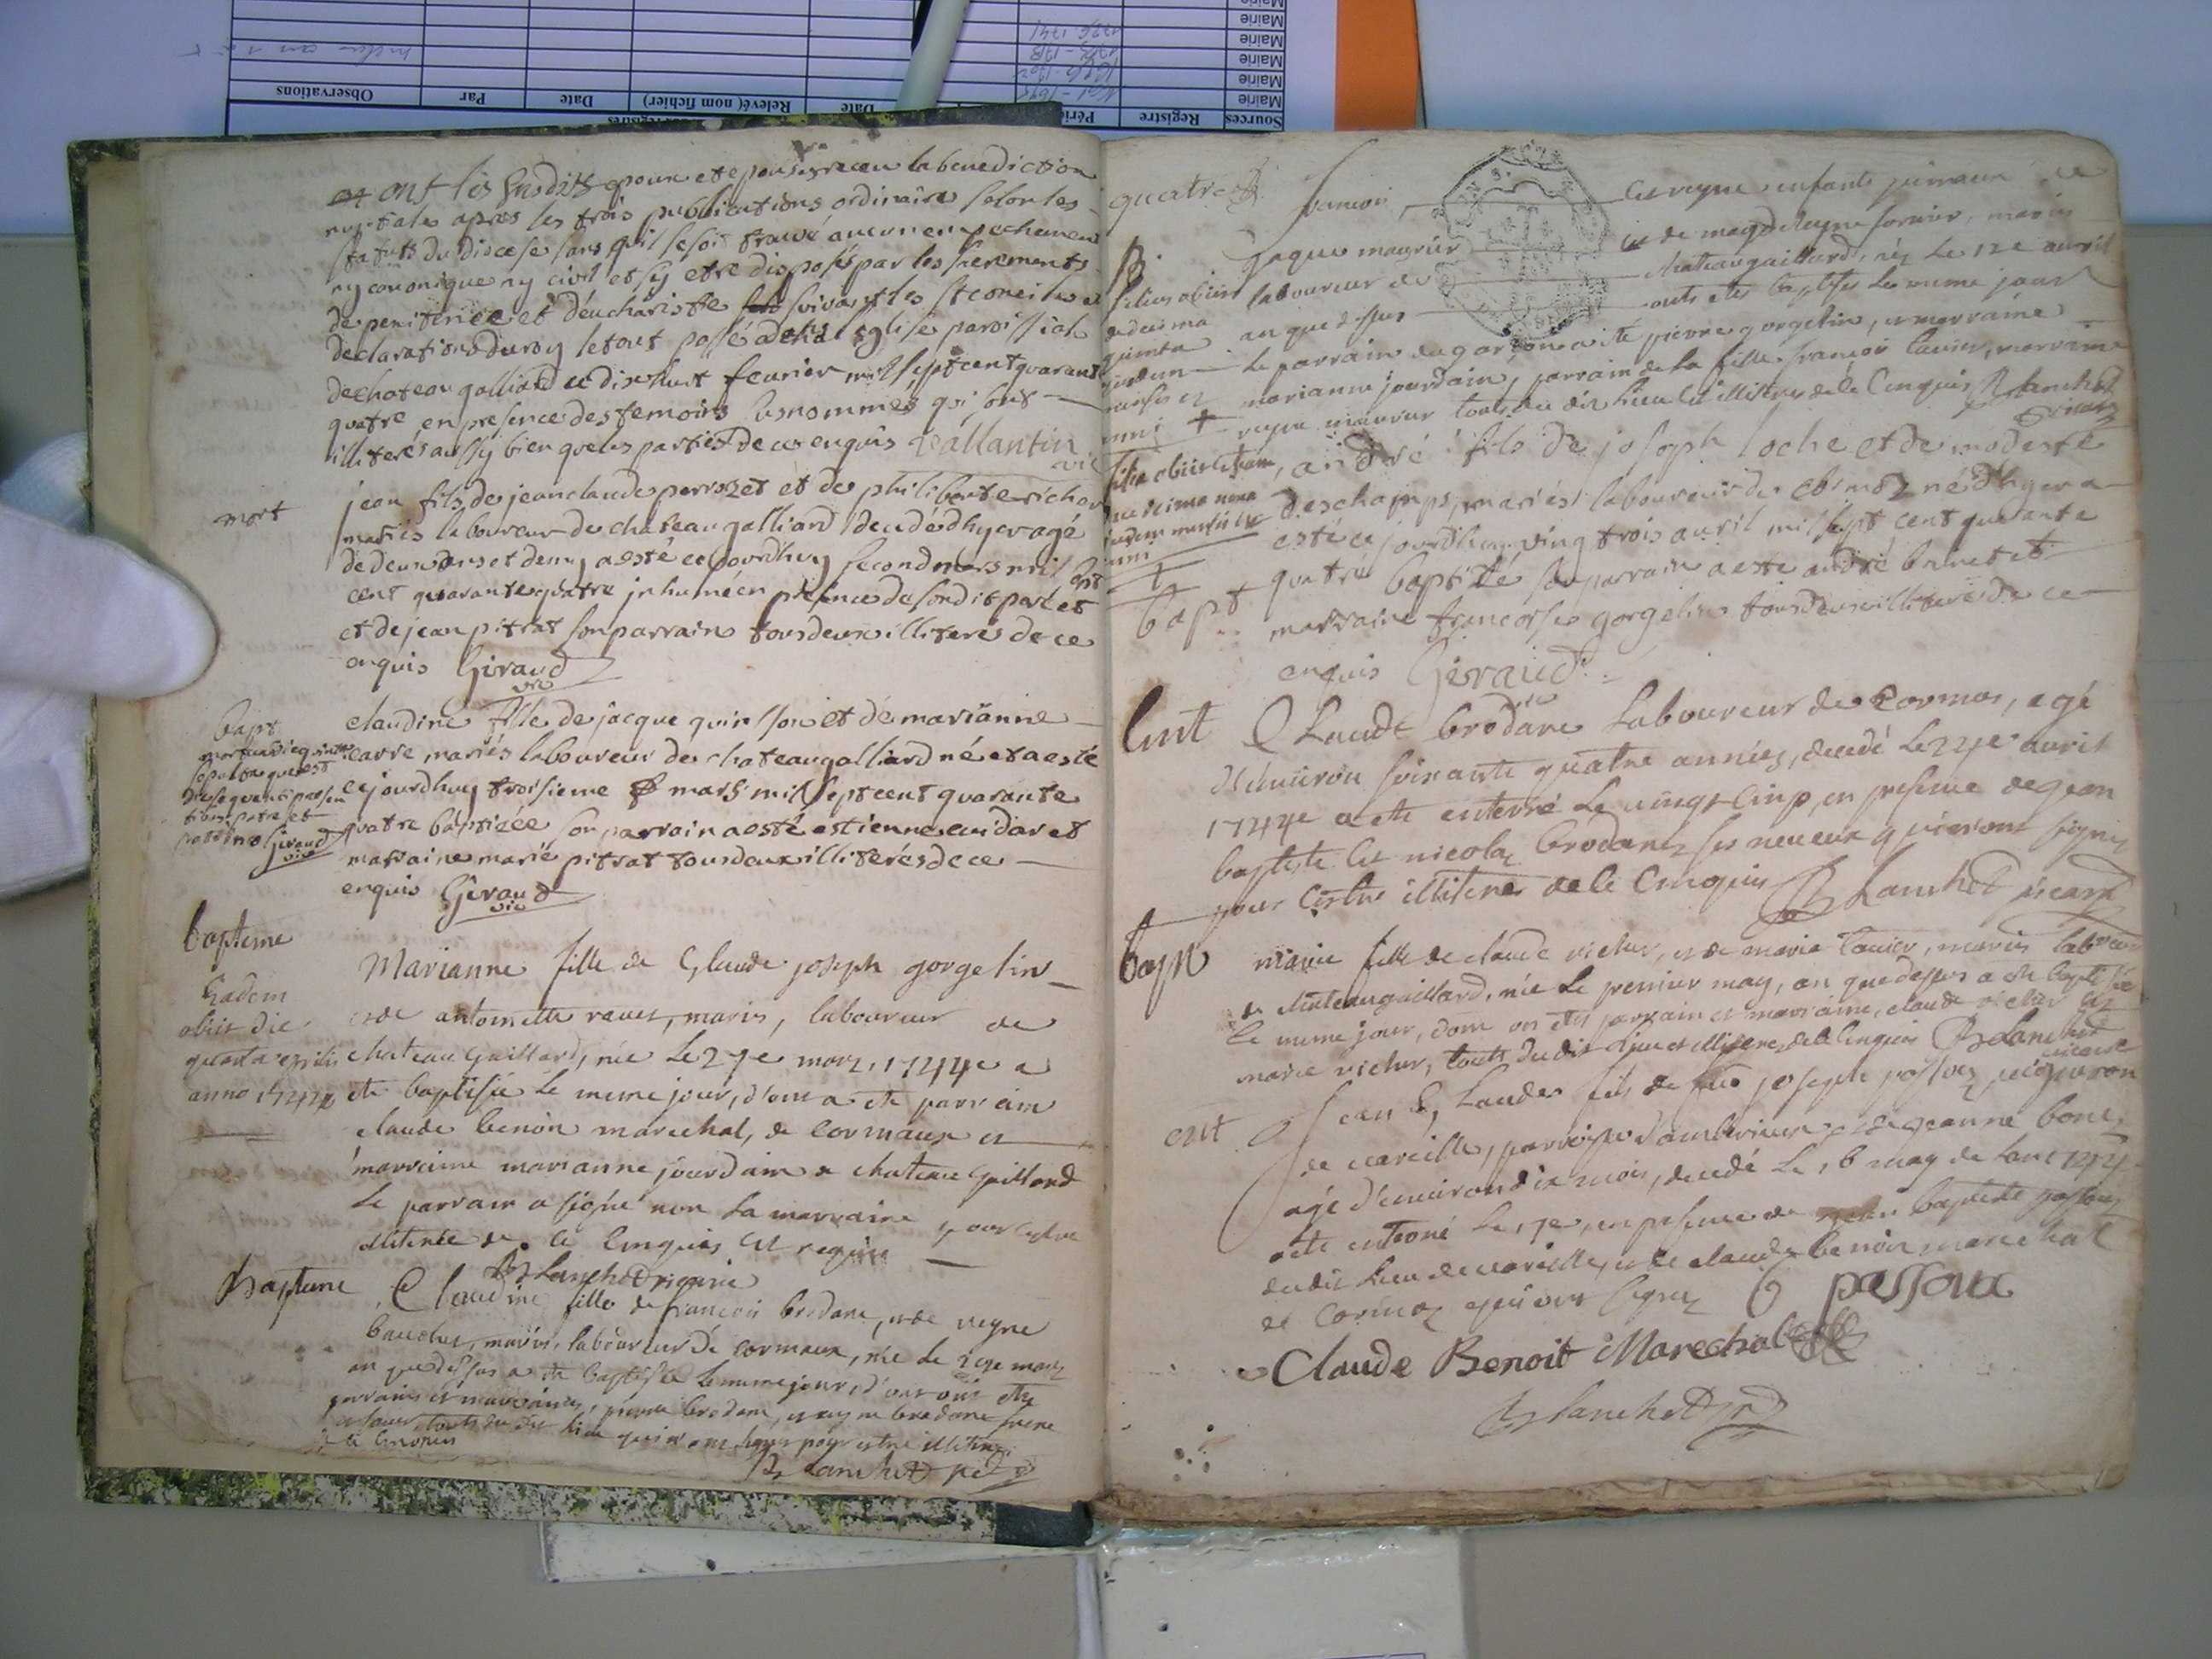 Sources
Registre
Date
Relevé (nom fichier)
Date
Par
Observations
Mairie
Mairie
Mairie
Mairie
Mairie
et ont les susdits epoux et epouses receu la benediction
nuptiale apres les trois publications ordinaire selon les
statuts du diocese sans quil se soit trouvé aucun empechement
ny canonique ny civil et sy etre disposés par les sacrements
de penitence et d'eucharistie suivant les st conciles et
declarations du roy le tout passé dans l'eglise paroissiale
de chateau galliard ce dix huit fevrier mil sept cent quarante
quatre en presence des temoins susnommés qui sont
illiterés aussy bien que les parties de ce enquis Vallantin
vic
mort
jean fils de jean claude perrozet et de philiberte richar
mariés laboureur de chateau galliard decedé d'hyer agé
de deux ans et demy a esté ce jourdhuy second mars mil sept
cent quarante quatre inhumé en presence de son dit pere et
et de jean pitrat son parrain tous deux illiterés de ce
enquis Giraud
vic
bapt
claudine fille de jacque quinson et de marianne
carre mariés laboureur de chateau galliard né et a esté
cejourdhuy troisieme mars mil sept cent quarante
quatre baptisée son parrain a esté estienne cuidar et
marraine marie pitrat tous deux illiterés de ce
enquis Giraud
vic
Giraud
vic
bapteme
Eadem
obiit die
quarta
anno 1744
Marianne fille de Claude joseph gorgelin
et de antoinette ravet, mariés, laboureur de
chateau gaillard, née le 27e mars, 1744e a
ete baptisée le meme jour, d'ont a ete parrain
claude benoit marechal, de cormaux et
marraine marianne jourdain de chateau gaillard
le parrain a signé non la marraine pour estre
illiterée de ce enquis et requise
Blanchod vicaire
Bapteme
Claudine fille de francois brodane, et de reyne
bauchet, mariés, laboureur de cormaux, née le 29e mars
an que dessus a ete baptisée le meme jour, d'ont ont ete
parrains et marraines, pierre brodane, et reyne brodane frere
et soeur, touts du dit lieu qui n'ont signés pour estre illiterés
de ce enquis
Blanchod
quatre
B.
filius obiit
die decima
quinta
francois,
et reyne enfants jumeaux de
jaque maurier
et de magdeleyne fornier, mariés
laboureur de
chateaugaillard, nés le 12e avril
an que dessus
ont etes baptisés le meme jour
le parrain du garçon a été pierre gorgelin, et marraine
marianne jourdain, parrain de la fille francois tavier, marraine
reyne maurier touts du dit lieu et illiterés de ce enquis Blanchod
vicaire
filia obiit etiam
decima nona
bapt
andré fils de joseph loche et de modeste
deschamps, mariés laboureur de cormoz né d'hyer a
esté ce jourdhuy vingt trois avril mil sept cent quarante
quatre baptizé son parrain a esté andré brunet et
marraine francoise gorgelin tous deux illiterés de ce
enquis Giraud
vic
Ent
Claude brodane laboureur de Cormos, agé
d'environ soixante quatre années, decedé le 24e avril
1744e a ete enterré le vingt cinq, en presence de jean
baptiste et nicolas brodane ses neveux qui n'ont signés
pour estre illiterés de ce enquis Blanchod vicaire
bapt
marie fille de claude vicher, et de marie tavier, mariés laboureur
de chateaugaillard, née le premier may, an que dessus a ete baptisée
le meme jour, dont ont etes parrain et marraine, claude vicher et
marie vicher, touts du dit lieu et illiterés de ce enquis Blanchod
vicaire
ent
Jean Claude fils de feu joseph possoz vigneron
de vareille, parroisse d'ambérieux et de jeanne bone,
agé d'environ dix mois, decedé le 16 may de l'an 1744
a ete enterré le 17e, en presence de jean baptiste possoz
du dit lieu de vareille, et de claude benoit marechal
de Cormoz qui ont signés
passoux
Claude Benoit Marechal
Blanchod